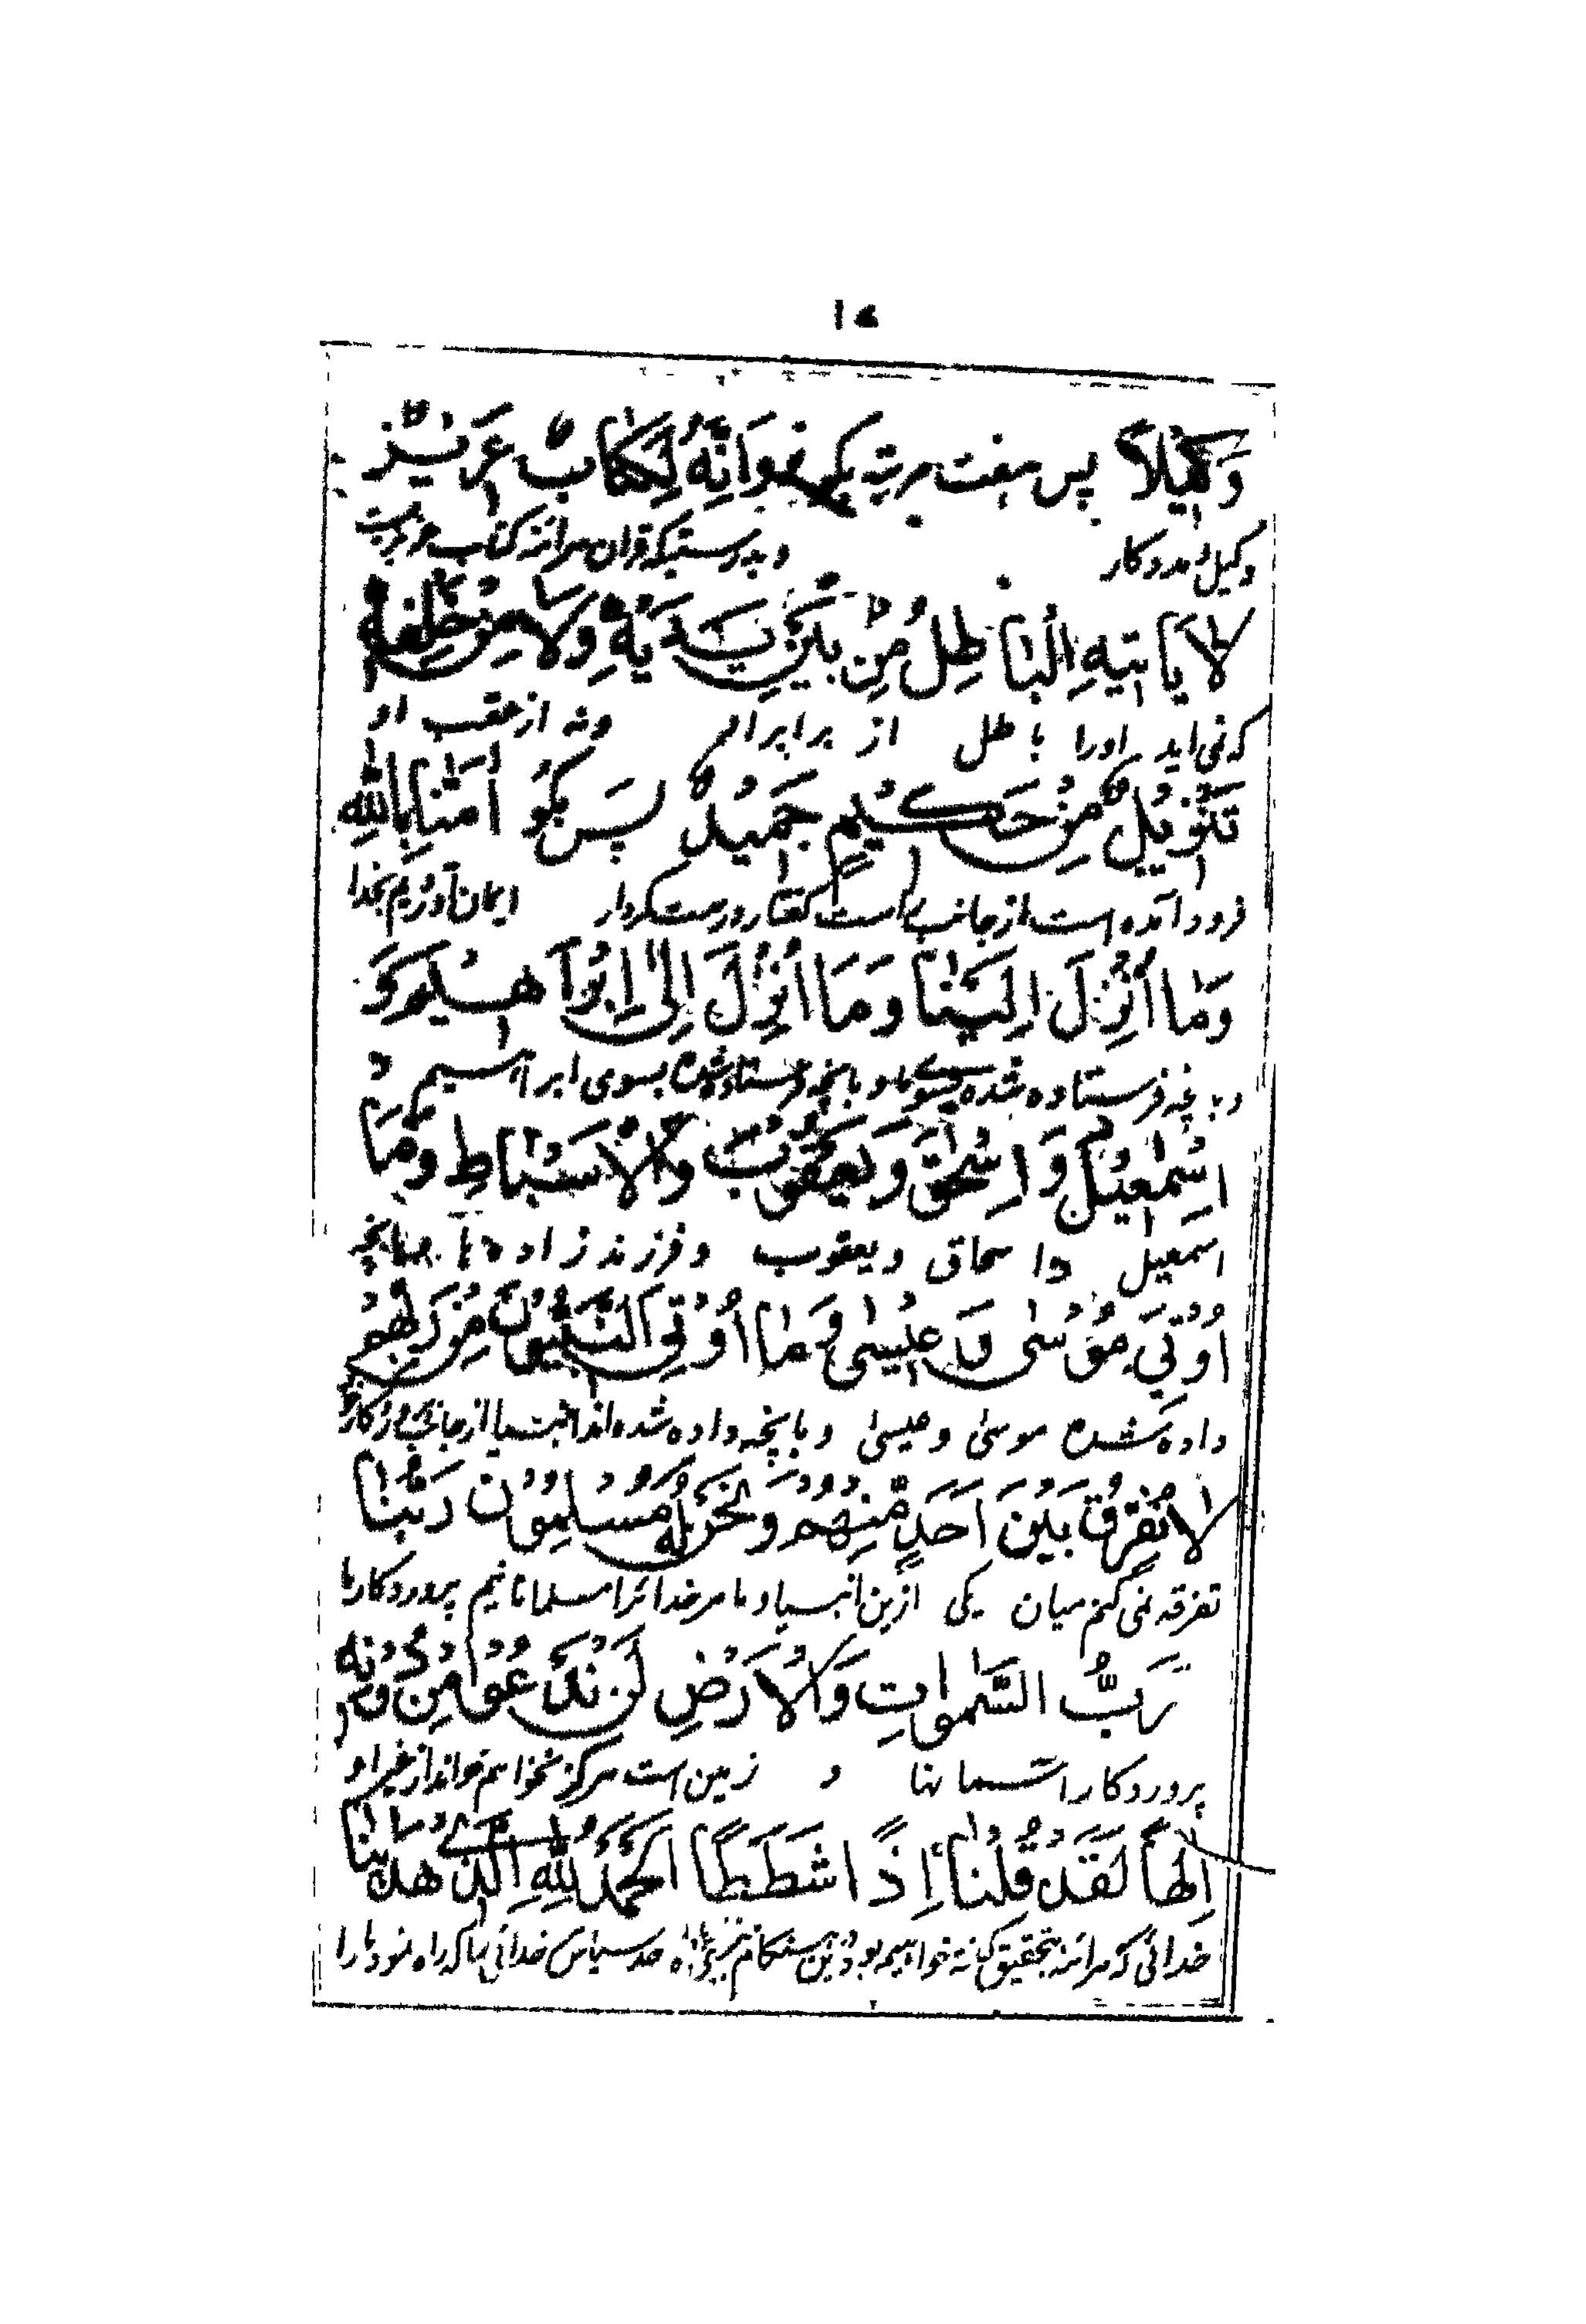 ۱۷
وَكِيْلًا پس هفت مرتبه بگو وَاِنَّهُ لَكِتَابٌ عَزِيْزٌ
وکیل و مددکار و بدرستیکه قران هرائنه کتاب عزیزست
لَا يَأْتِيْهِ الْبَاطِلُ مِنْ بَيْنِ يَدَيْهِ وَلَا مِنْ خَلْفِهٖ
که نمی اید اورا باطل از برابر او ونه از عقب او
تَنْزِيْلٌ مِنْ حَكِيْمٍ حَمِيْدٌ پس بگو اٰمَنَّا بِاللّٰهِ
فرود آمده است از جانب راست گفتار درست کردار ایمان آوردیم بخدا
وَمَا اُنْزِلَ اِلَيْنَا وَمَا اُنْزِلَ اِلٰى اِبْرَاهِيْمَ وَ
و بانچه فرستاده شده بسوی ما و بانچه فرستاده شده بسوی ابراهیم و
اِسْمٰعِيْلَ وَ اِسْحٰقَ وَيَعْقُوْبَ وَالْاَسْبَاطِ وَمَا
اسمعیل و اسحاق و یعقوب و فرزند زاده ها و بانچه
اُوْتِيَ مُوْسٰى وَ عِيْسٰى وَمَا اُوْتِيَ النَّبِيُّوْنَ مِنْ رَبِّهِمْ
داده شده موسی و عیسی و بانچه داده شده اند از جانب پروردگار
لَا نُفَرِّقُ بَيْنَ اَحَدٍ مِّنْهُمْ وَنَحْنُ لَهٗ مُسْلِمُوْنَ رَبُّنَا
تفرقه نمی کنم میان یکی ازین انبیاء و ما مر خدائرا مسلمانانیم پروردگار ما
رَبُّ السَّمٰوَاتِ وَالْاَرْضِ لَنْ نَدْعُوَا مِنْ دُوْنِهٖ
پروردگار اسمانها و زمین است هرگز نخواهم خواند از غیر او
اِلٰهًا لَقَدْ قُلْنَا اِذًا شَطَطًا اَلْحَمْدُ لِلّٰهِ الَّذِيْ هَدَانَا
خدائی که هرائنه بتحقیق گفته خواهیم بود درین هنگام حمد سپاس خدائی راکه راه نمود مارا